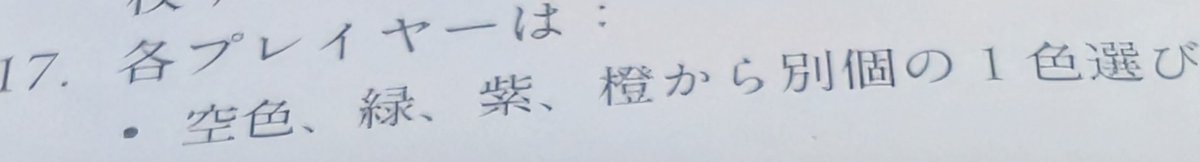 17. 各プレイヤーは：
• 空色、緑、紫、橙から別個の1色選び